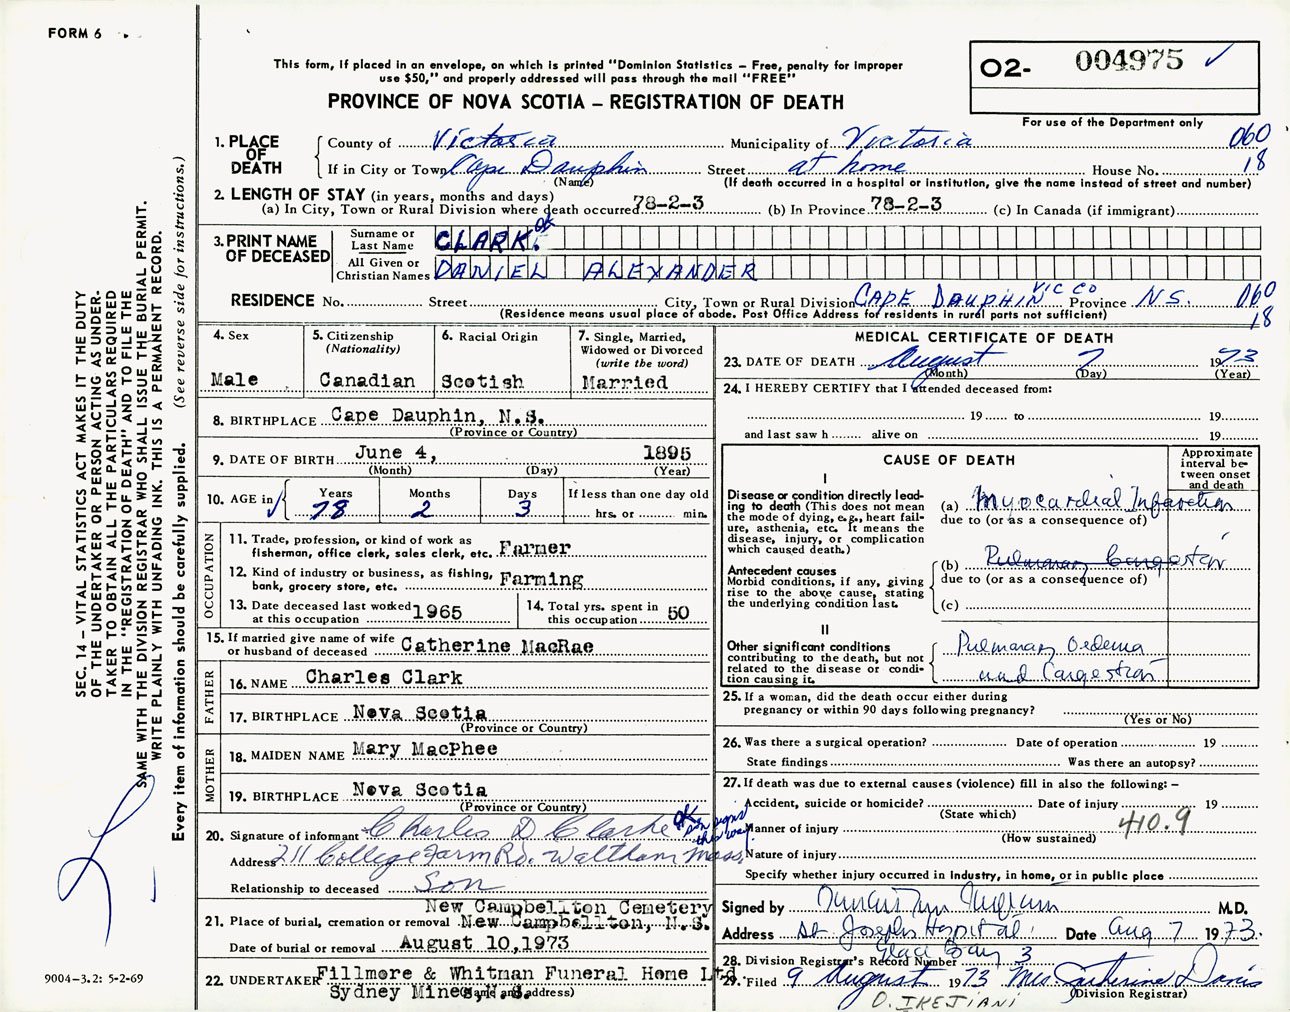 FORM 6
This form, if placed in an envelope, on which is printed "Dominion Statistics — Free, penalty for improper
use $50," and properly addressed will pass through the mail "FREE"
PROVINCE OF NOVA SCOTIA — REGISTRATION OF DEATH
O2- 004975 ✓
For use of the Department only
1. PLACE OF DEATH
County of Victoria Municipality of Victoria 060
If in City or Town Cape Dauphin Street at home House No. 18
(Name) (If death occurred in a hospital or institution, give the name instead of street and number)
2. LENGTH OF STAY (in years, months and days)
(a) In City, Town or Rural Division where death occurred 78-2-3 (b) In Province 78-2-3 (c) In Canada (if immigrant)
3. PRINT NAME OF DECEASED
Surname or Last Name CLARK. ok
All Given or Christian Names DANIEL ALEXANDER
RESIDENCE No. Street City, Town or Rural Division CAPE DAUPHIN VIC CO Province N.S. 060
(Residence means usual place of abode. Post Office Address for residents in rural parts not sufficient) 18
4. Sex
Male
5. Citizenship
(Nationality)
Canadian
6. Racial Origin
Scotish
7. Single, Married,
Widowed or Divorced
(write the word)
Married
8. BIRTHPLACE Cape Dauphin, N.S.
(Province or Country)
9. DATE OF BIRTH June 4, 1895
(Month) (Day) (Year)
10. AGE in ✓
Years Months Days If less than one day old
78 2 3 hrs. or min.
OCCUPATION
11. Trade, profession, or kind of work as
fisherman, office clerk, sales clerk, etc. Farmer
12. Kind of industry or business, as fishing,
bank, grocery store, etc. Farming
13. Date deceased last worked
at this occupation 1965
14. Total yrs. spent in
this occupation 50
15. If married give name of wife
or husband of deceased Catherine MacRae
FATHER
16. NAME Charles Clark
17. BIRTHPLACE Nova Scotia
(Province or Country)
MOTHER
18. MAIDEN NAME Mary MacPhee
19. BIRTHPLACE Nova Scotia
(Province or Country)
20. Signature of informant Charles D Clarke ok son signs this way
Address 211 College Farm Rd. Waltham Mass.
Relationship to deceased Son
New Campbellton Cemetery
21. Place of burial, cremation or removal New Campbellton, N.S.
Date of burial or removal August 10,1973
22. UNDERTAKER Fillmore & Whitman Funeral Home Ltd.
Sydney Mines, N.S.
(Name and address)
MEDICAL CERTIFICATE OF DEATH
23. DATE OF DEATH August 7 1973
(Month) (Day) (Year)
24. I HEREBY CERTIFY that I attended deceased from:
19 to 19
and last saw h alive on 19
CAUSE OF DEATH
Approximate
interval be-
tween onset
and death
I
Disease or condition directly lead-
ing to death (This does not mean
the mode of dying, e.g., heart fail-
ure, asthenia, etc. It means the
disease, injury, or complication
which caused death.)
(a) Myocardial Infarction
due to (or as a consequence of)
Antecedent causes
Morbid conditions, if any, giving
rise to the above cause, stating
the underlying condition last.
(b) Pulmonary Congestion
due to (or as a consequence of)
(c)
II
Other significant conditions
contributing to the death, but not
related to the disease or condi-
tion causing it.
Pulmonary Oedema
and Congestion
25. If a woman, did the death occur either during
pregnancy or within 90 days following pregnancy?
(Yes or No)
26. Was there a surgical operation? Date of operation 19
State findings Was there an autopsy?
27. If death was due to external causes (violence) fill in also the following: —
Accident, suicide or homicide? Date of injury 19
(State which)
Manner of injury 410.9
(How sustained)
Nature of injury
Specify whether injury occurred in industry, in home, or in public place
Signed by M.D.
Address St Josephs Hospital Date Aug 7 1973.
Glace Bay
28. Division Registrar's Record Number 3
29. Filed 9 August 1973 Mrs Catherine Davis
(Division Registrar)
O. IKEJIANI
SEC. 14 — VITAL STATISTICS ACT MAKES IT THE DUTY
OF THE UNDERTAKER OR PERSON ACTING AS UNDER-
TAKER TO OBTAIN ALL THE PARTICULARS REQUIRED
IN THE "REGISTRATION OF DEATH" AND TO FILE THE
SAME WITH THE DIVISION REGISTRAR WHO SHALL ISSUE THE BURIAL PERMIT.
WRITE PLAINLY WITH UNFADING INK. THIS IS A PERMANENT RECORD.
Every item of information should be carefully supplied. (See reverse side for instructions.)
9004-3.2: 5-2-69